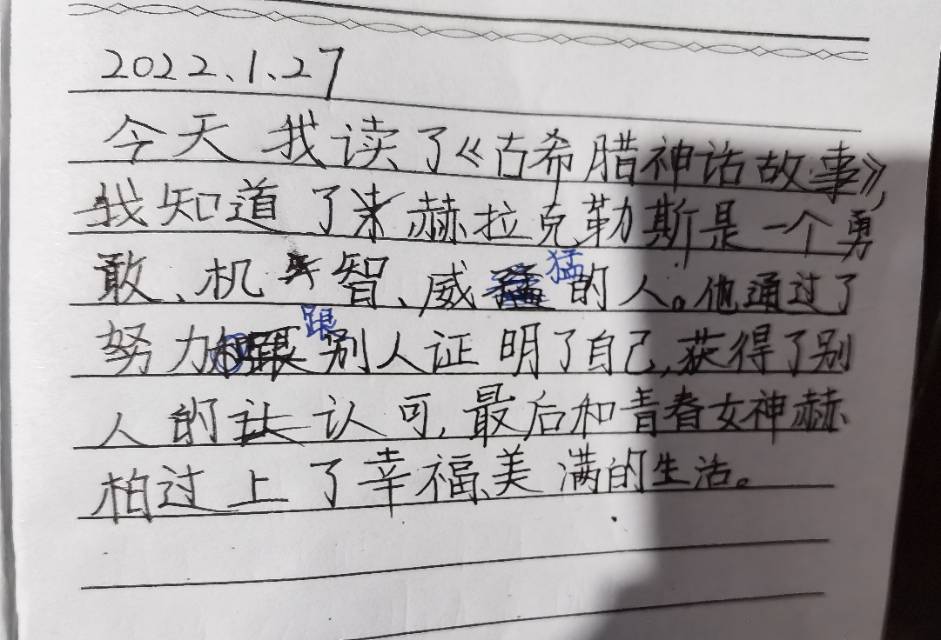 2022.1.27
今天我读了《古希腊神话故事》,
我知道了赫拉克勒斯是一个勇
敢、机智、威猛的人。他通过了
努力跟别人证明了自己,获得了别
人的认可,最后和青春女神赫
柏过上了幸福、美满的生活。